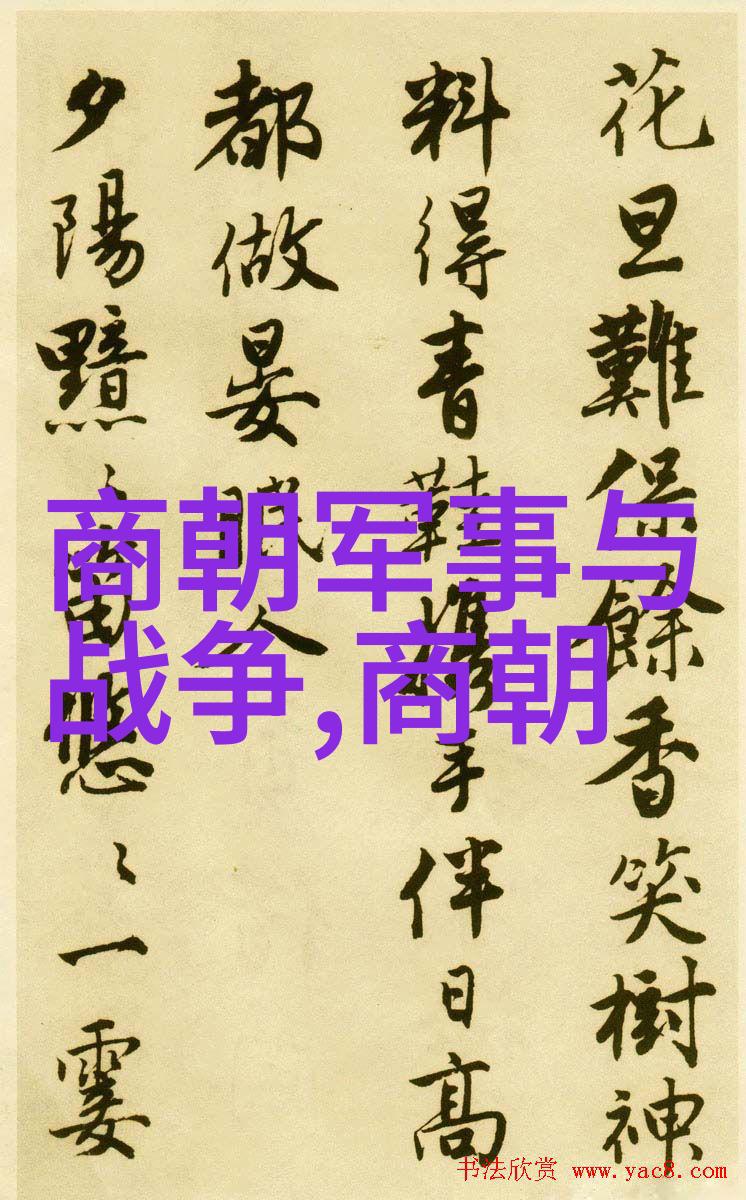 花旦難保餘香笑樹神
料得青鞋攜手伴日高
都做晏眠人
夕陽黯〻笛悠〻一霎
商朝军事与
战争,商朝
书法欣赏 www.yac8.com